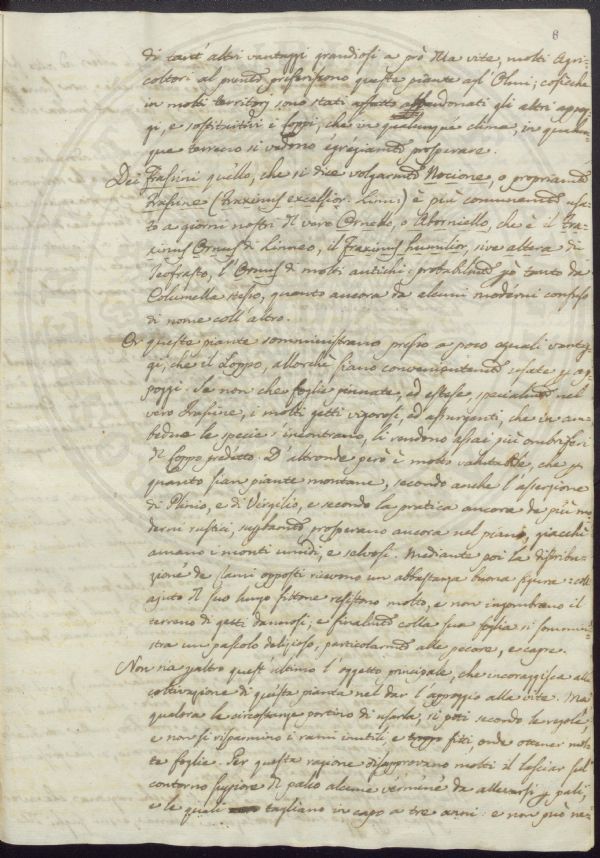 8
di tant' altri vantaggi grandiosi a prò della vite, molti Agri-
coltori al presente preferiscono queste piante agl' Olmi; cosicchè
in molti territorj sono stati affatto abbandonati gli altri appog-
gi, e sostituitivi i loppi, che in qualunque clima, in qualun-
que terreno si vedono egregiamente prosperare.
Dei Frassini quello, che si dice volgarmente Nocione, o propriamente
Frassine (Fraxinus excelsior. Linn:) è più comunemente usa-
to a giorni nostri del vero Ornello, o Aborniello, che è il Fra-
xinus Ornus di Linneo, il Fraxinus humilior, sive altera di
Teofrasto, l' Ornus di molti antichi: probabilmente già tanto da
Columella stesso, quanto ancora da alcuni moderni confuso
di nome coll' altro.
Or queste piante somministrano presso a poco eguali vantag-
gi, che il Loppo, allorchè siano convenientemente usate per ap-
poggi. Se non che foglie pinnate, ed estese, specialmente nel
vero Frassine, i molti getti vigorosi, ed assurganti, che in am-
bedue le specie s' incontrano, li rendono assai più ombriferi
del Loppo predetto. D' altronde però è molto valutabile, che per
quanto sian piante montane, secondo anche l' asserzione
di Plinio, e di Virgilio, e secondo la pratica ancora de più mo-
derni rustici, prosperano ancora nel piano, giacchè
amano i monti umidi, e selvosi. Mediante poi la distribu-
zione de rami opposti ricevono un abbastanza buona figura: coll'
ajuto del suo lungo fittone resistono molto, e non ingombrano il
terreno di getti dannosi; e finalmente colla sua foglia si sommini-
stra un pascolo delizioso, particolarmente alle pecore, e capre.
Non sia peraltro quest' ultimo l' oggetto principale, che incoraggisca alla
coltivazione di questa pianta nel dar l' appoggio alla vite. Ma
qualora le circostanze portino di usarla, si poti secondo le regole,
e non si risparmino i rami inutili, e troppo fitti, onde ottener mol-
te foglie. Per questa ragione disapprovano molti il lasciar sul
contorno superiore del palco alcune vermene da allevarsi per pali,
e le quali tagliano in capo a tre anni: e non può ne-